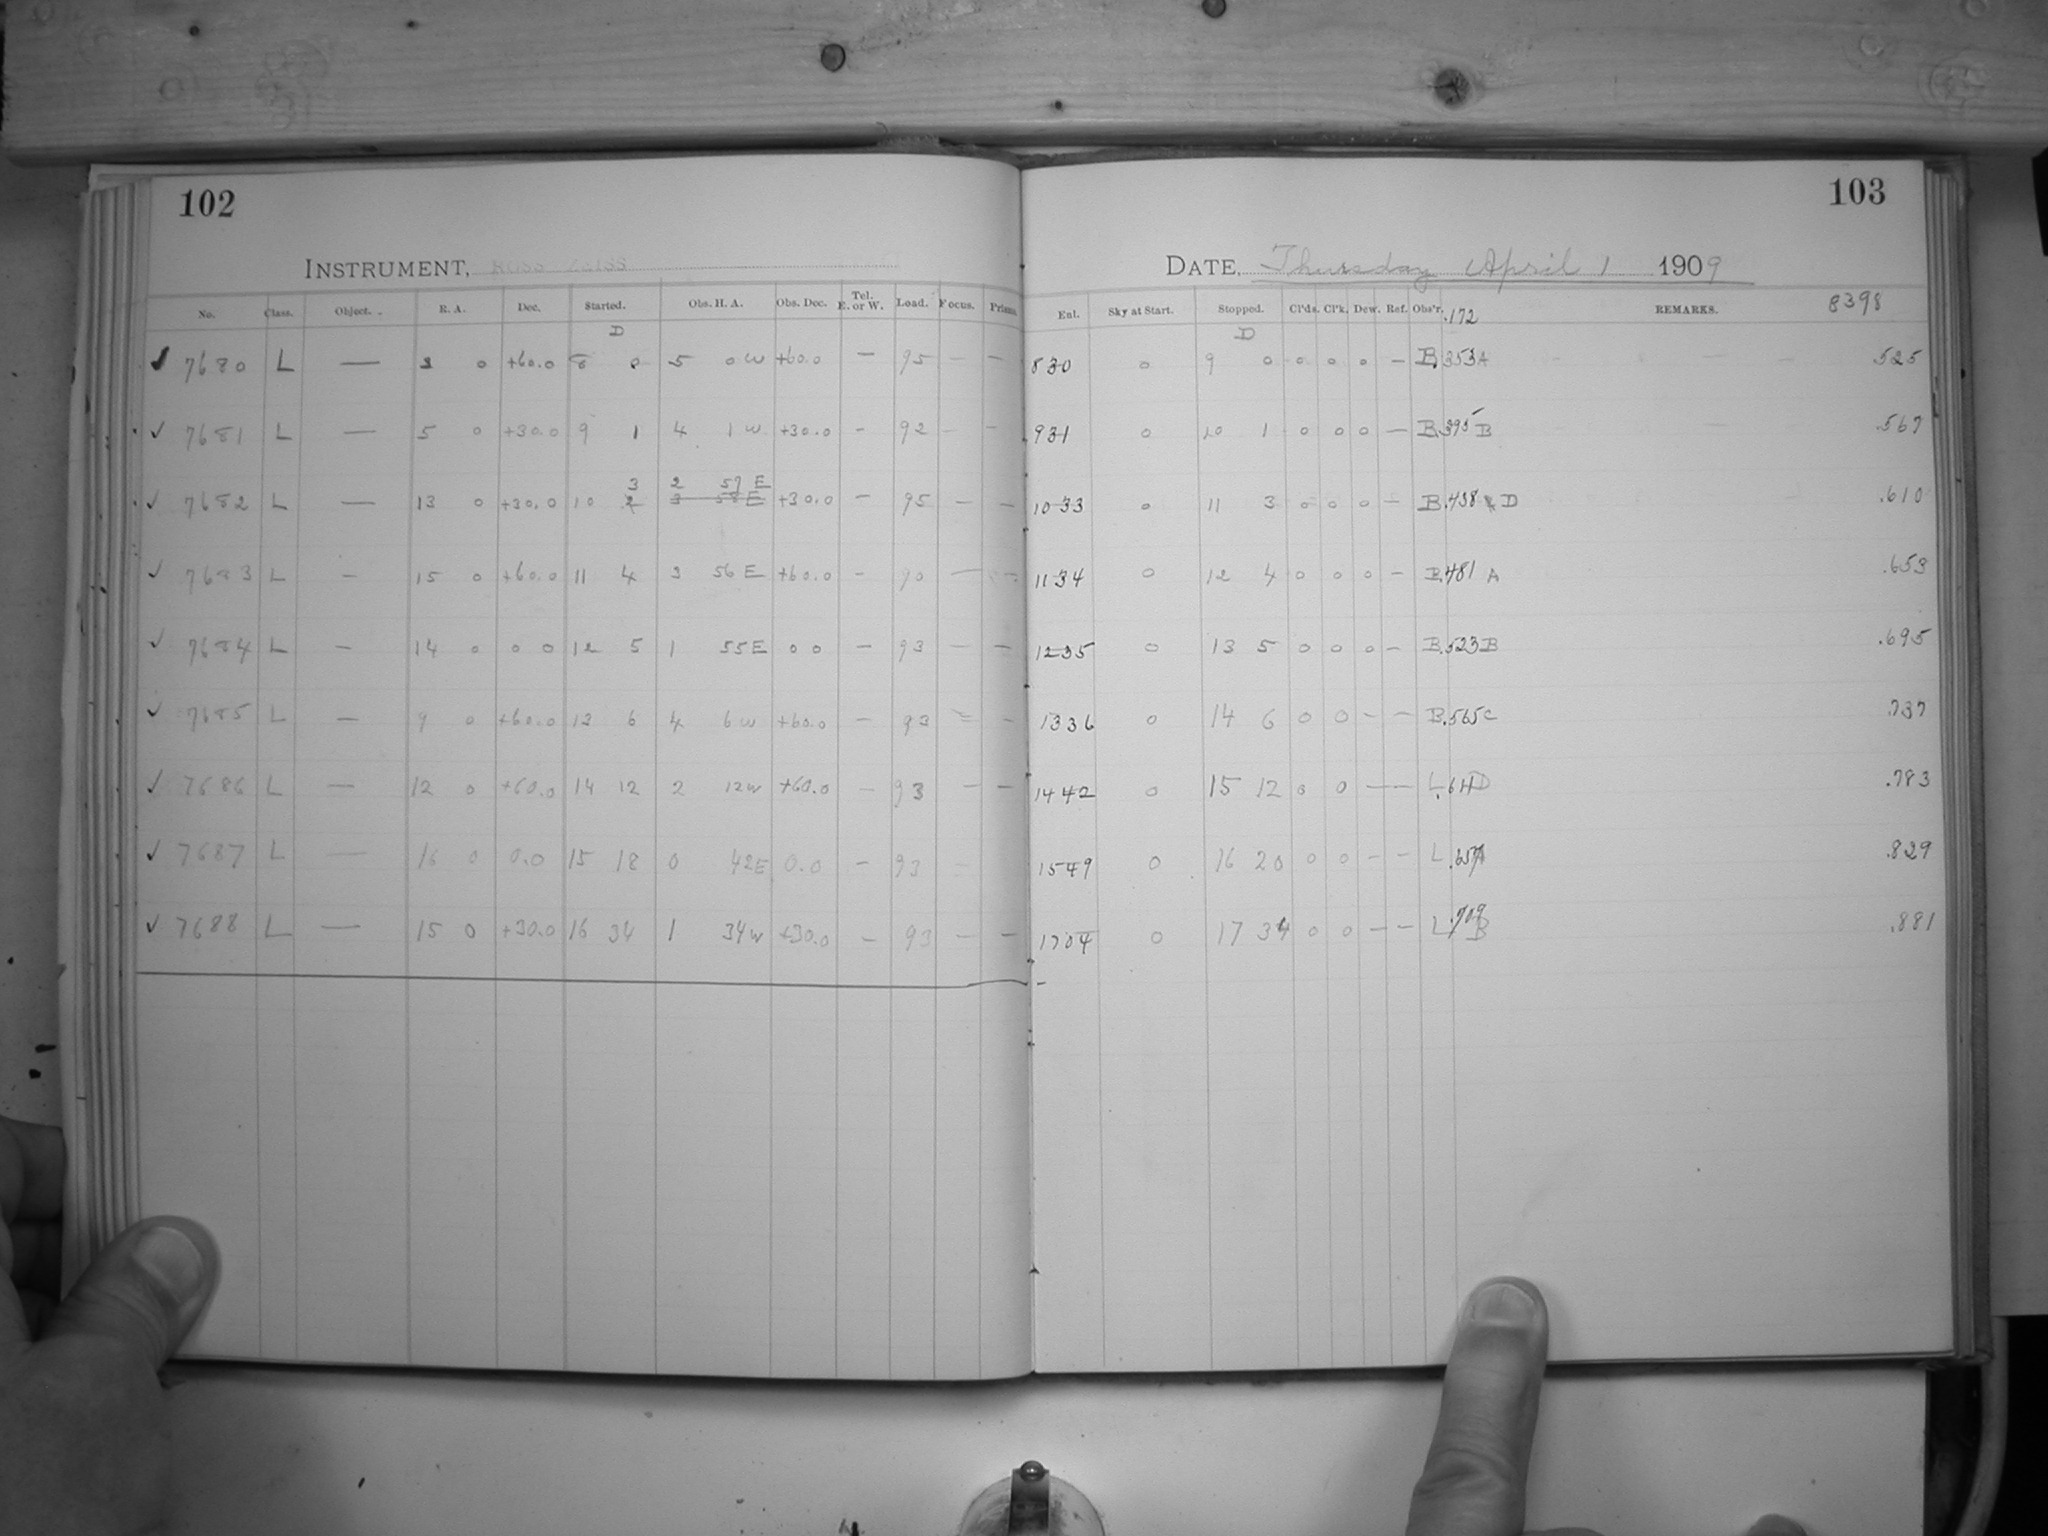 102
INSTRUMENT, ROSS ZEISS
No. Class. Object. R. A. Dec. Started. Obs. H. A. Obs. Dec. Tel. E. or W. Load. Focus. Prism.
D
✓ 7680 L — 3 0 +60.0 8 0 5 0 W +60.0 — 95 — —
✓ 7681 L — 5 0 +30.0 9 1 4 1 W +30.0 - 92 - -
3 2 57 E
✓ 7682 L — 13 0 +30.0 10 2 3 58 E +30.0 — 95 — —
✓ 7683 L — 15 0 +60.0 11 4 3 56 E +60.0 - 90 — —
✓ 7684 L — 14 0 0 0 12 5 1 55 E 0 0 — 93 — —
✓ 7685 L — 9 0 +60.0 13 6 4 6 W +60.0 — 93 — —
✓ 7686 L — 12 0 +60.0 14 12 2 12 W +60.0 — 93 — —
✓ 7687 L — 16 0 0.0 15 18 0 42 E 0.0 — 93 —
✓ 7688 L — 15 0 +30.0 16 34 1 34 W +30.0 — 93 — —
103
DATE, Thursday April 1 1909
Enl. Sky at Start. Stopped. Cl'ds. Cl'k. Dew. Ref. Obs'r. .172 REMARKS. 8398
D
830 0 9 0 0 0 0 — B .353 A .525
931 0 10 1 0 0 0 — B .395 B .567
1033 0 11 3 0 0 0 — B .438 D .610
1134 0 12 4 0 0 0 — B .481 A .653
1235 0 13 5 0 0 0 — B .523 B .695
1336 0 14 6 0 0 — — B .565 C .737
1442 0 15 12 0 0 — — L .611 D .783
1549 0 16 20 0 0 — — L .657 A .829
1704 0 17 34 0 0 — — L .709 B .881